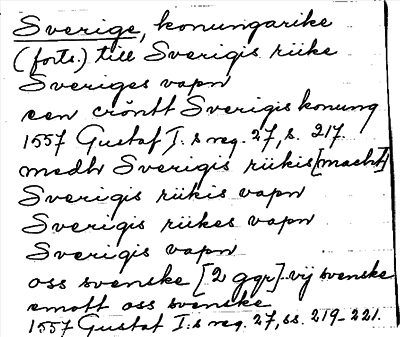 Sverige, konungarike
(forts.) till Sverigis riike
Sveriges vapn
een cröntt Sverigis konung
1557 Gustaf I:s reg. 27, s. 217.
medh Sverigis riikis [macht]
Sverigis riikis vapn
Sverigis riikes vapn
Sverigis vapn
oss svenske [2 ggr]. vij svenske
emott oss svenske
1557 Gustaf I:s reg. 27, ss. 219-221.